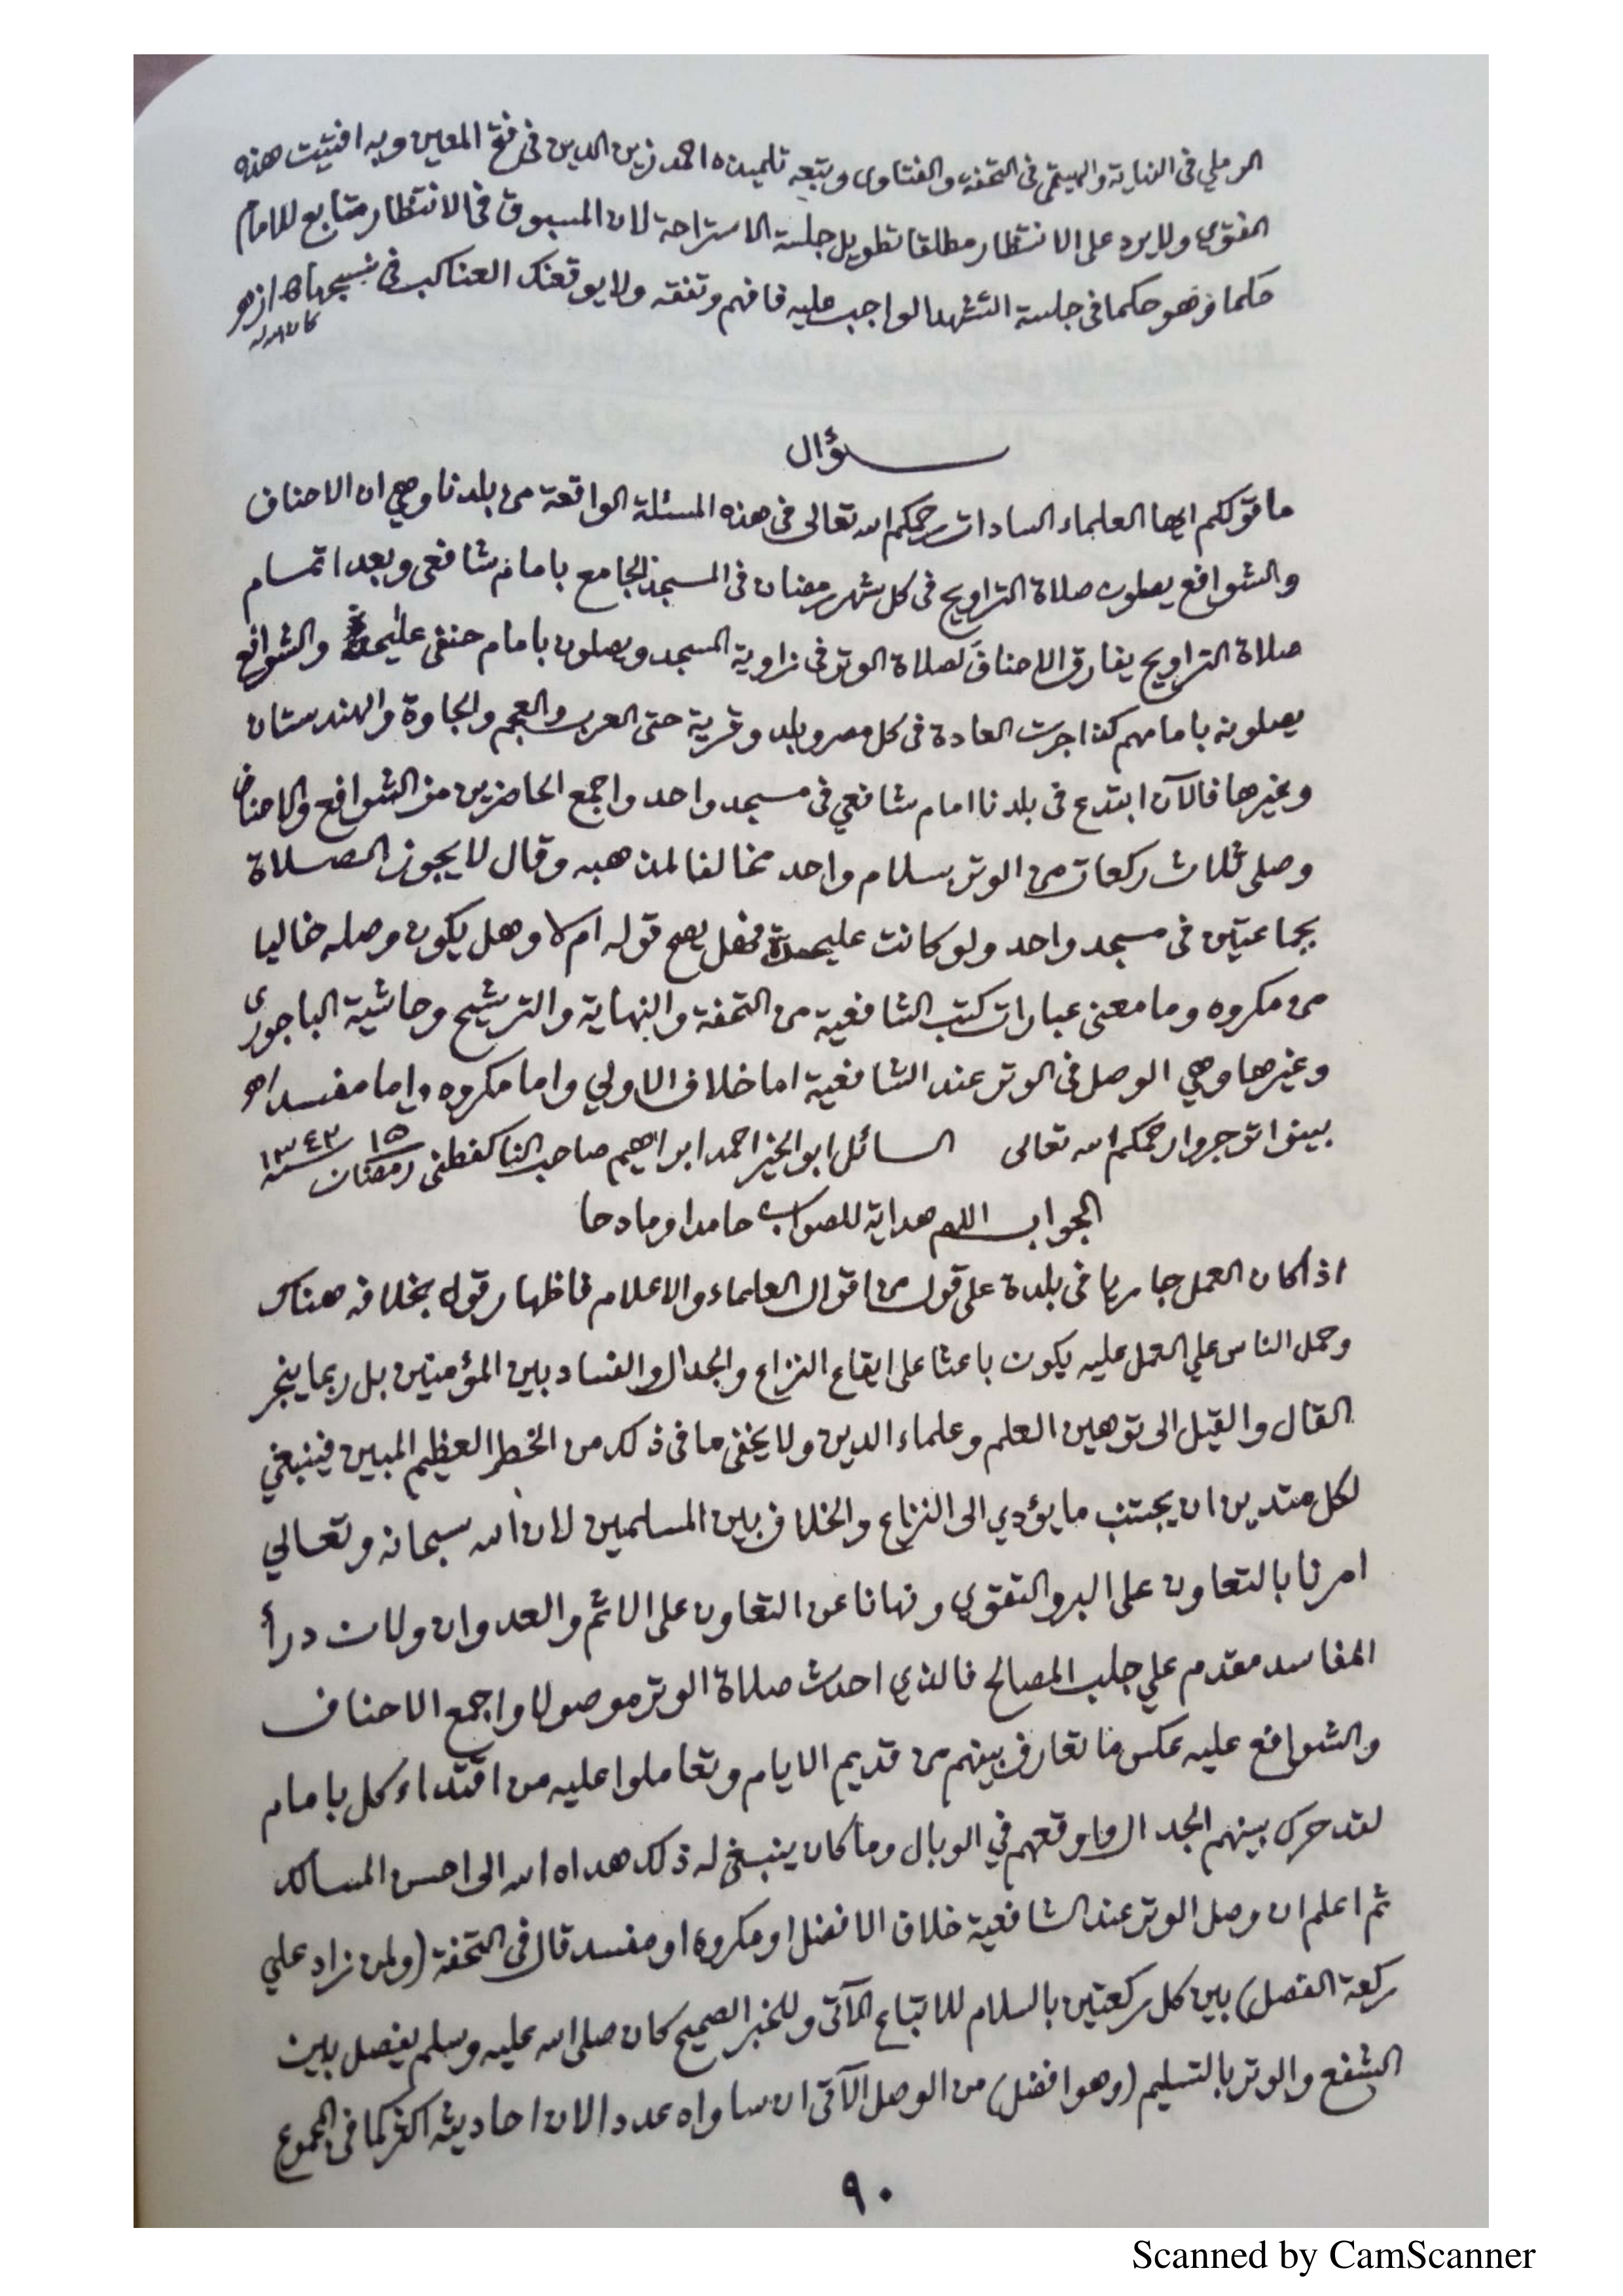 الرملي في النهاية والهيتمي في التحفة والفتاوى وتبعه تلميذه احمد زين الدين في فتح المعين وبه افتيت هذه
الفتوى ولا يرد على الانتظار مطلقا تطويل جلسة الاستراحة لان المسبوق في الانتظار متابع للامام
حكما وهو حكما في جلسة التشهد الواجب عليه فافهم وتفقه ولا يوقعنك العناكب في نسيجها اه ازهر
كان الله له
سؤال
ما قولكم ايها العلماء السادات رحمكم الله تعالى في هذه المسئلة الواقعة من بلدنا وهي ان الاحناف
والشوافع يصلون صلاة التراويح في كل شهر رمضان في المسجد الجامع بامام شافعي وبعد اتمام
صلاة التراويح يفارق الاحناف لصلاة الوتر في زاوية المسجد ويصلون بامام حنفي عليحدة والشوافع
يصلونه بامامهم كذا جرت العادة في كل مصر وبلد وقرية حتى العرب والعجم والجاوة والهندستان
وغيرها فالآن ابتدع في بلدنا امام شافعي في مسجد واحد واجمع الحاضرين من الشوافع والاحناف
وصلى ثلاث ركعات من الوتر بسلام واحد مخالفا لمذهبه وقال لا يجوز الصلاة
بجماعتين في مسجد واحد ولو كانت عليحدة فهل يصح قوله ام لا وهل يكون وصله خاليا
من مكروه وما معنى عبارات كتب الشافعية من التحفة والنهاية والترشيح وحاشية الباجوري
وغيرها وهي الوصل في الوتر عند الشافعية اما خلاف الاولي واما مكروه واما مفسد اهـ
بينوا توجروا رحمكم الله تعالى السائل ابو الخير احمد ابراهيم صاحب الناكفطني ١٥ رمضان سنة ١٣٤٣
الجواب اللهم هداية للصواب حامدا ومادحا
اذا كان العمل جاريا في بلدة على قول من اقوال العلماء والاعلام فاظهار قول بخلافه هناك
وحمل الناس علي العمل عليه يكون باعثا على ايقاع النزاع والجدال والفساد بين المؤمنين بل ربما ينجر
القال والقيل الى توهين العلم وعلماء الدين ولا يخفى ما في ذلك من الخطر العظيم المبين فينبغي
لكل متدين ان يجتنب ما يؤدي الى النزاع والخلاف بين المسلمين لان الله سبحانه وتعالي
امرنا بالتعاون على البر والتقوي ونهانا عن التعاون على الاثم والعدوان ولان درأ
المفاسد مقدم علي جلب المصالح فالذي احدث صلاة الوتر موصولا واجمع الاحناف
والشوافع عليه عكس ما تعارف بينهم من قديم الايام وتعاملوا عليه من اقتداء كل بامام
لقد حرك بينهم الجدال واوقعهم في الوبال وما كان ينبغي له ذلك هداه الله الى احسن المسالك
ثم اعلم ان وصل الوتر عند الشافعية خلاف الافضل او مكروه او مفسد قال في التحفة (ولمن زاد علي
ركعة الفصل) بين كل ركعتين بالسلام للاتباع الآتي وللخبر الصحيح كان صلى الله عليه وسلم يفصل بين
الشفع والوتر بالتسليم (وهو افضل) من الوصل الآتي ان ساواه عددا لان احاديثه اكثر كما في المجموع
٩٠
Scanned by CamScanner